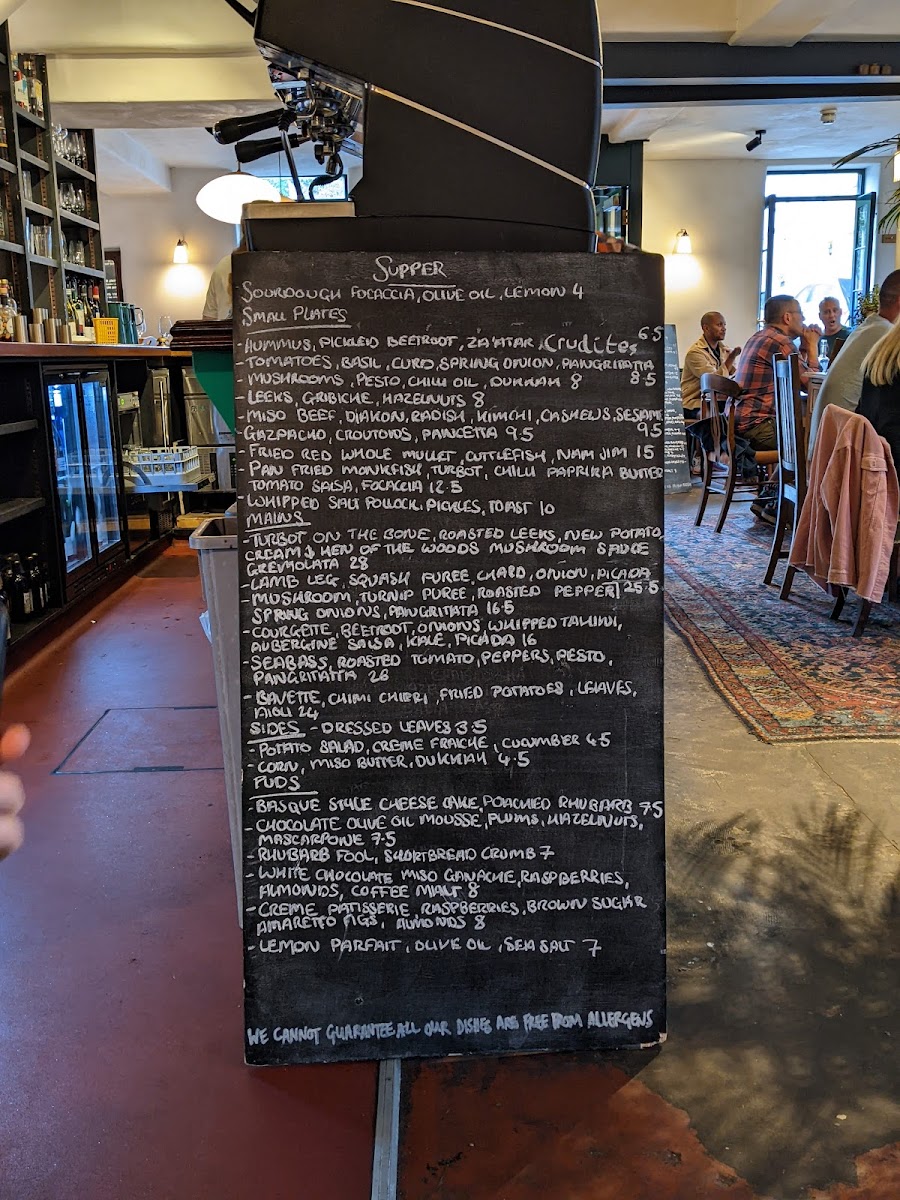 SUPPER
SOURDOUGH FOCACCIA, OLIVE OIL, LEMON 4
SMALL PLATES
- HUMMUS, PICKLED BEETROOT, ZA'ATAR, Crudites 6.5
- TOMATOES, BASIL, CURD, SPRING ONION, PANGRITATTA
- MUSHROOMS, PESTO, CHILLI OIL, DUKKAH 8 8.5
- LEEKS, GRIBICHE, HAZELNUTS 8
- MISO BEEF, DIAKON, RADISH, KIMCHI, CASHEWS, SESAME
- GAZPACHO, CROUTOIDS, PANCETTA 9.5 9.5
- FRIED RED WHOLE MULLET, CUTTLEFISH, NAM JIM 15
- PAN FRIED MONKFISH, TURBOT, CHILLI PAPRIKA BUTTER
TOMATO SALSA, FOCACCIA 12.5
- WHIPPED SALT POLLOCK, PICKLES, TOAST 10
MAINS
- TURBOT ON THE BONE, ROASTED LEEKS, NEW POTATO,
CREAM & HEN OF THE WOODS MUSHROOM SAUCE
GREMOLATA 28
- LAMB LEG, SQUASH PUREE, CHARD, ONION, PICADA
- MUSHROOM, TURNIP PUREE, ROASTED PEPPER, 25.5
SPRING ONIONS, PANGRITATA 16.5
- COURGETTE, BEETROOT, ONIONS, WHIPPED TAHINI,
AUBERGINE SALSA, KALE, PICADA 16
- SEABASS, ROASTED TOMATO, PEPPERS, PESTO,
PANGRITATTA 26
- BAVETTE, CHIMI CHIERI, FRIED POTATOES, LEAVES,
AIOLI 24
SIDES - DRESSED LEAVES 3.5
- POTATO SALAD, CREME FRAICHE, CUCUMBER 4.5
- CORN, MISO BUTTER, DUKKAH 4.5
PUDS
- BASQUE STYLE CHEESE CAKE, POACHED RHUBARB 7.5
- CHOCOLATE OLIVE OIL MOUSSE, PLUMS, HAZELNUTS,
MASCARPONE 7.5
- RHUBARB FOOL, SHORTBREAD CRUMB 7
- WHITE CHOCOLATE MISO GANACHE, RASPBERRIES,
ALMONDS, COFFEE MALT 8
- CREME PATISSERIE, RASPBERRIES, BROWN SUGAR
AMARETTO FIGS, ALMONDS 8
- LEMON PARFAIT, OLIVE OIL, SEA SALT 7
WE CANNOT GUARANTEE ALL OUR DISHES ARE FREE FROM ALLERGENS